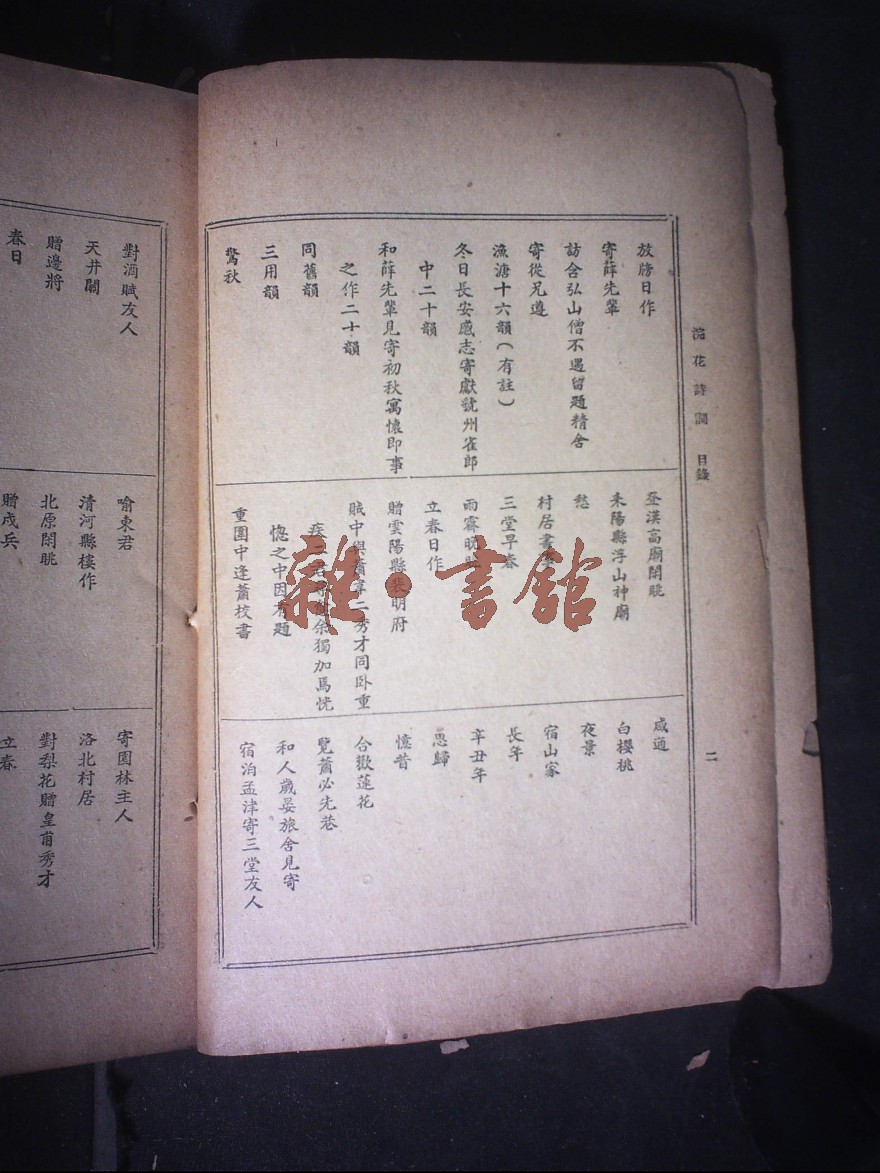 浣花詩詞 目錄
二
放牓日作
寄薛先輩
訪含弘山僧不遇留題精舍
寄從兄遵
漁溏十六韻(有註)
冬日長安感志寄獻虢州崔郎
中二十韻
和薛先輩見寄初秋寓懷即事
之作二十韻
同舊韻
三用韻
驚秋
登漢高廟閑眺
耒陽縣浮山神廟
愁
村居書事
三堂早春
雨霽晚眺
立春日作
贈雲陽縣裴明府
賊中與蕭韋二秀才同卧重
疾二君 余獨加焉恍
惚之中因有題
重圍中逢蕭校書
咸通
白櫻桃
夜景
宿山家
長年
辛丑年
思歸
憶昔
合歡蓮花
覽蕭必先卷
和人歲晏旅舍見寄
宿泊孟津寄三堂友人
對酒賦友人
天井關
贈邊將
春日
喻東君
清河縣樓作
北原閑眺
贈戍兵
寄園林主人
洛北村居
對梨花贈皇甫秀才
立春
雜·書館